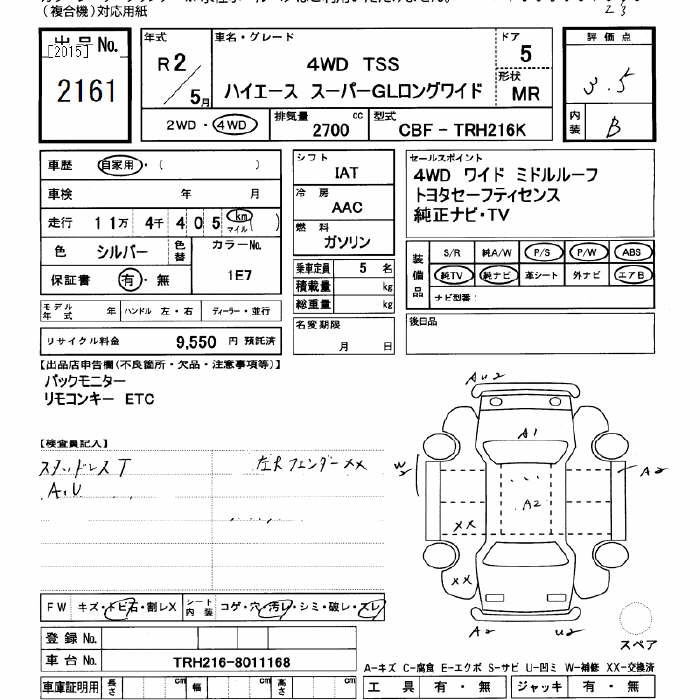 （複合機）対応用紙
23
出品No.
[2015]
2161
年式
R2／5月
車名・グレード
4WD TSS
ハイエース スーパーGLロングワイド
ドア
5
形状
MR
2WD・4WD
排気量
2700 cc
型式
CBF - TRH216K
評価点
3.5
内装
B
車歴 自家用・( )
車検 年 月
走行 11万 4千 405 km マイル ( )
色 シルバー 色替
カラーNo.
1E7
保証書 有・無
モデル年式 年 ハンドル 左・右 ディーラー・並行
リサイクル料金 9,550 円 預託済
シフト
IAT
冷房
AAC
燃料
ガソリン
乗車定員 5 名
積載量 kg
総重量 kg
名変期限
月 日
セールスポイント
4WD ワイド ミドルルーフ
トヨタセーフティセンス
純正ナビ・TV
装備品
S/R 純A/W P/S P/W ABS
純TV 純ナビ 革シート 外ナビ エアB
ナビ型番：
後日品
【出品店申告欄(不良箇所・欠品・注意事項等)】
バックモニター
リモコンキー ETC
【検査員記入】
スタッドレスT
A.U
左Fフェンダーxx
AU2
A1
W2
A2
A2
XX
XX
A2
U2
スペア
FW キズ・トビ石・割レX シート内装 コゲ・穴・汚レ・シミ・破レ・スレ
登録No.
車台No. TRH216-8011168
車庫証明用 長さ cm 幅 cm 高さ cm
A-キズ C-腐食 E-エクボ S-サビ U-凹ミ W-補修 XX-交換済
工具 有・無 ジャッキ 有・無